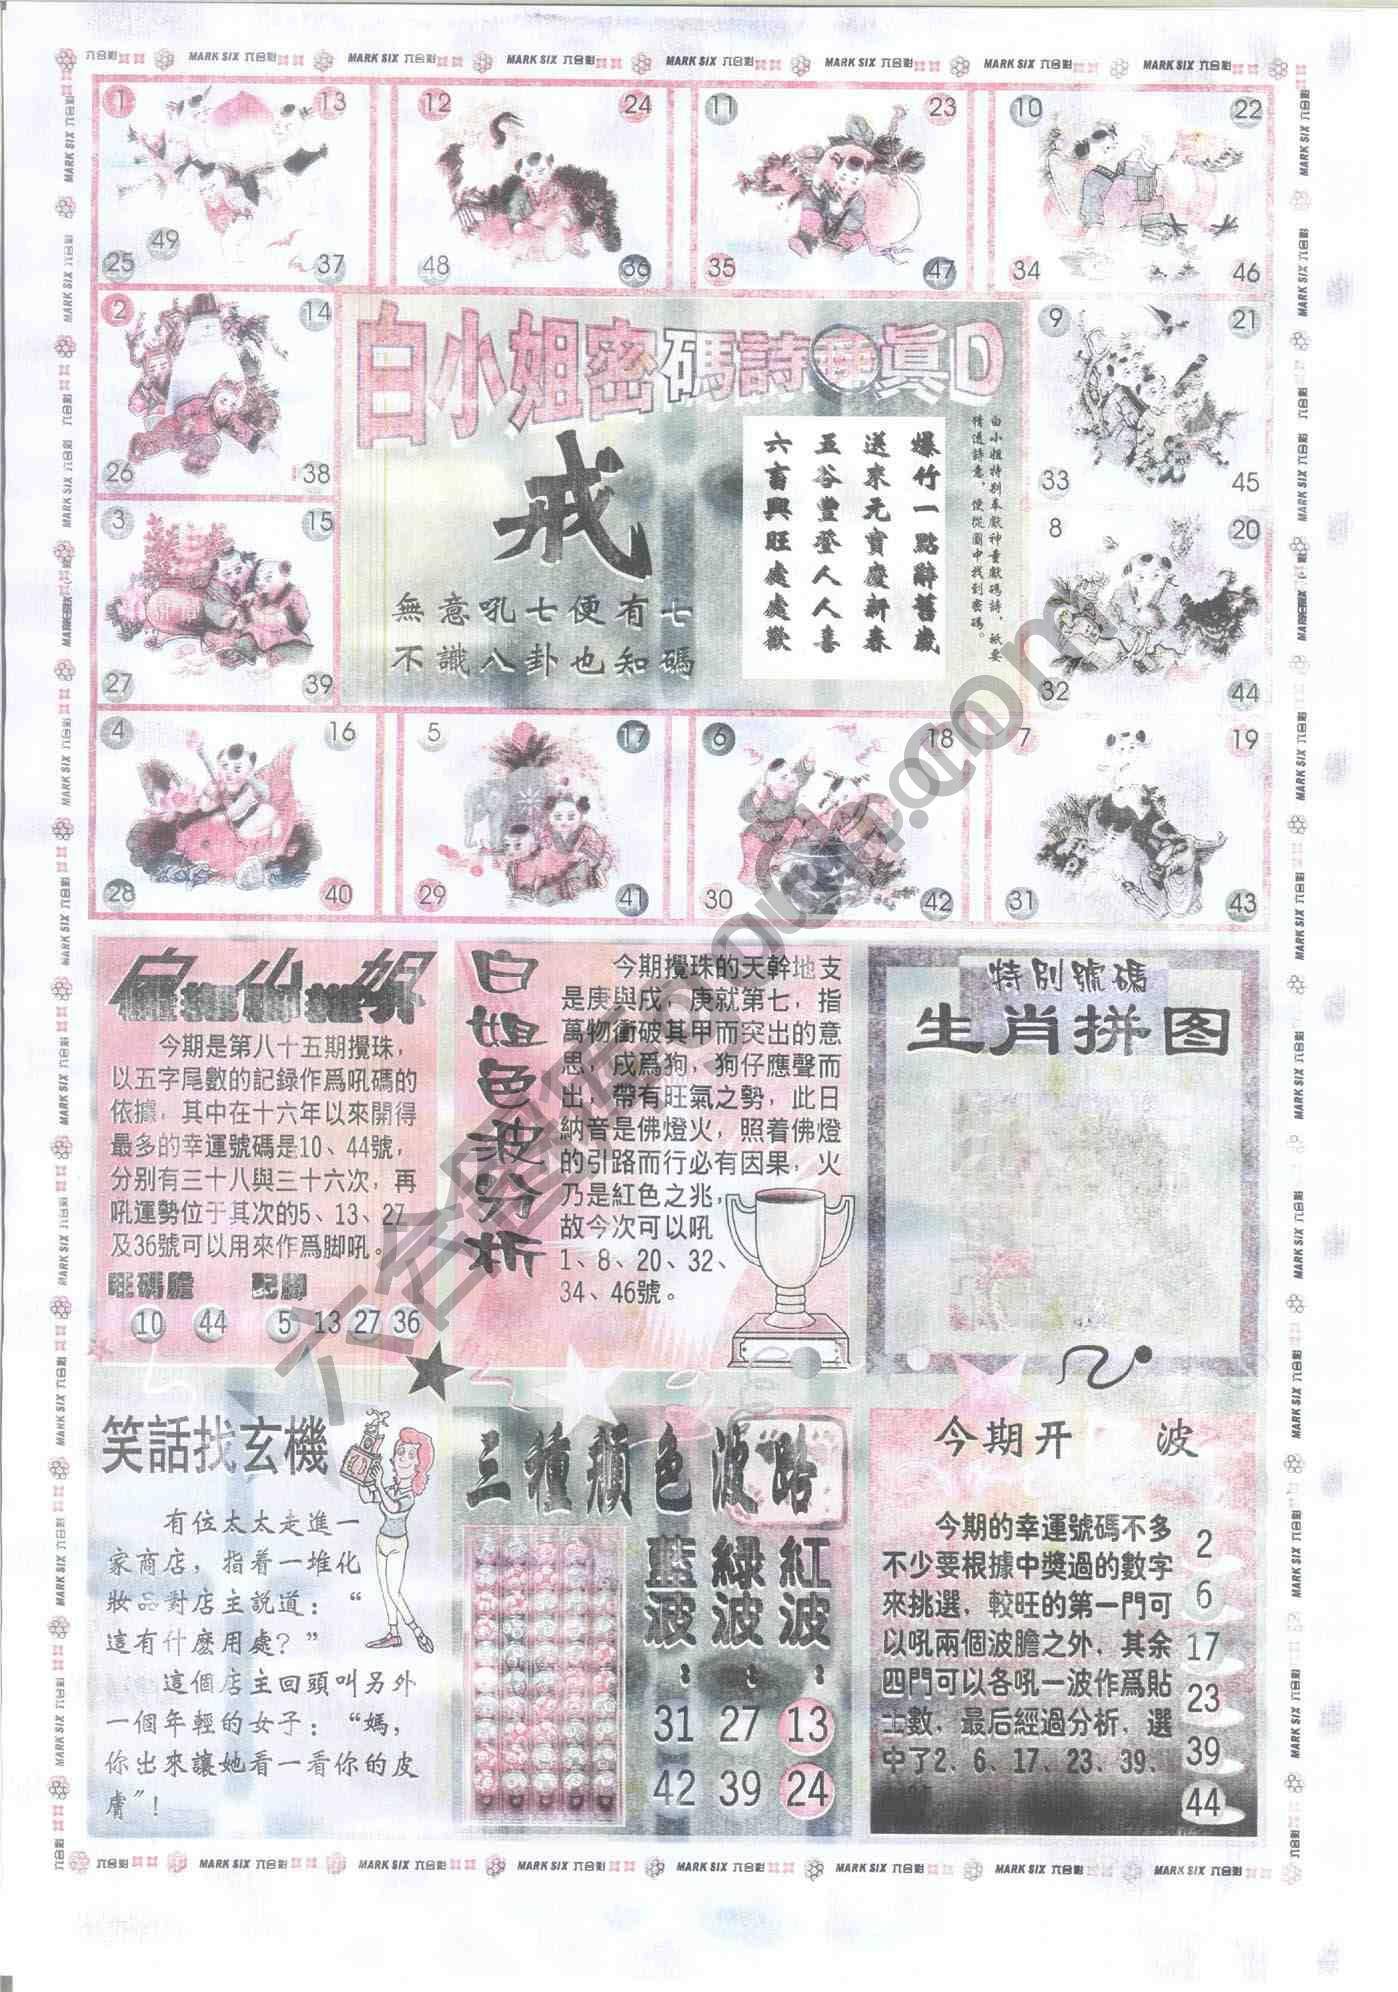 MARK SIX 六合彩
1 13 25 49 37
12 24 48 36
11 23 35 47
10 22 34 46
2 14 26 38
9 21 33 45
3 15 27 39
8 20 32 44
4 16 28 40
5 17 29 41
6 18 30 42
7 19 31 43
白小姐密碼詩
眞D
戒
無意吼七便有七
不識八卦也知碼
白小姐特别奉獻神童獻碼詩,祇要
猜透詩意,便從圖中找到密碼。
爆竹一點辭舊歲
送來元寶慶新春
五谷豐登人人喜
六畜興旺處處歡
白小姐
今期是第八十五期攪珠,
以五字尾數的記録作爲吼碼的
依據,其中在十六年以來開得
最多的幸運號碼是10、44號,
分别有三十八與三十六次,再
吼運勢位于其次的5、13、27
及36號可以用來作爲脚吼。
旺碼膽
配脚
10 44 5 13 27 36
白姐色波分析
今期攪珠的天幹地支
是庚與戌,庚就第七,指
萬物衝破其甲而突出的意
思,戌爲狗,狗仔應聲而
出,帶有旺氣之勢,此日
納音是佛燈火,照着佛燈
的引路而行必有因果,火
乃是紅色之兆,
故今次可以吼
1、8、20、32、
34、46號。
特别號碼
生肖拼图
笑話找玄機
有位太太走進一
家商店,指着一堆化
妝品對店主説道:“
這有什麽用處?”
這個店主回頭叫另外
一個年輕的女子:“媽,
你出來讓她看一看你的皮
膚”!
三種顏色波路
藍波: 綠波: 紅波:
31 27 13
42 39 24
今期开 波
今期的幸運號碼不多
不少要根據中獎過的數字
來挑選,較旺的第一門可
以吼兩個波膽之外,其余
四門可以各吼一波作爲貼
士數,最后經過分析,選
中了2、6、17、23、39、
2
6
17
23
39
44